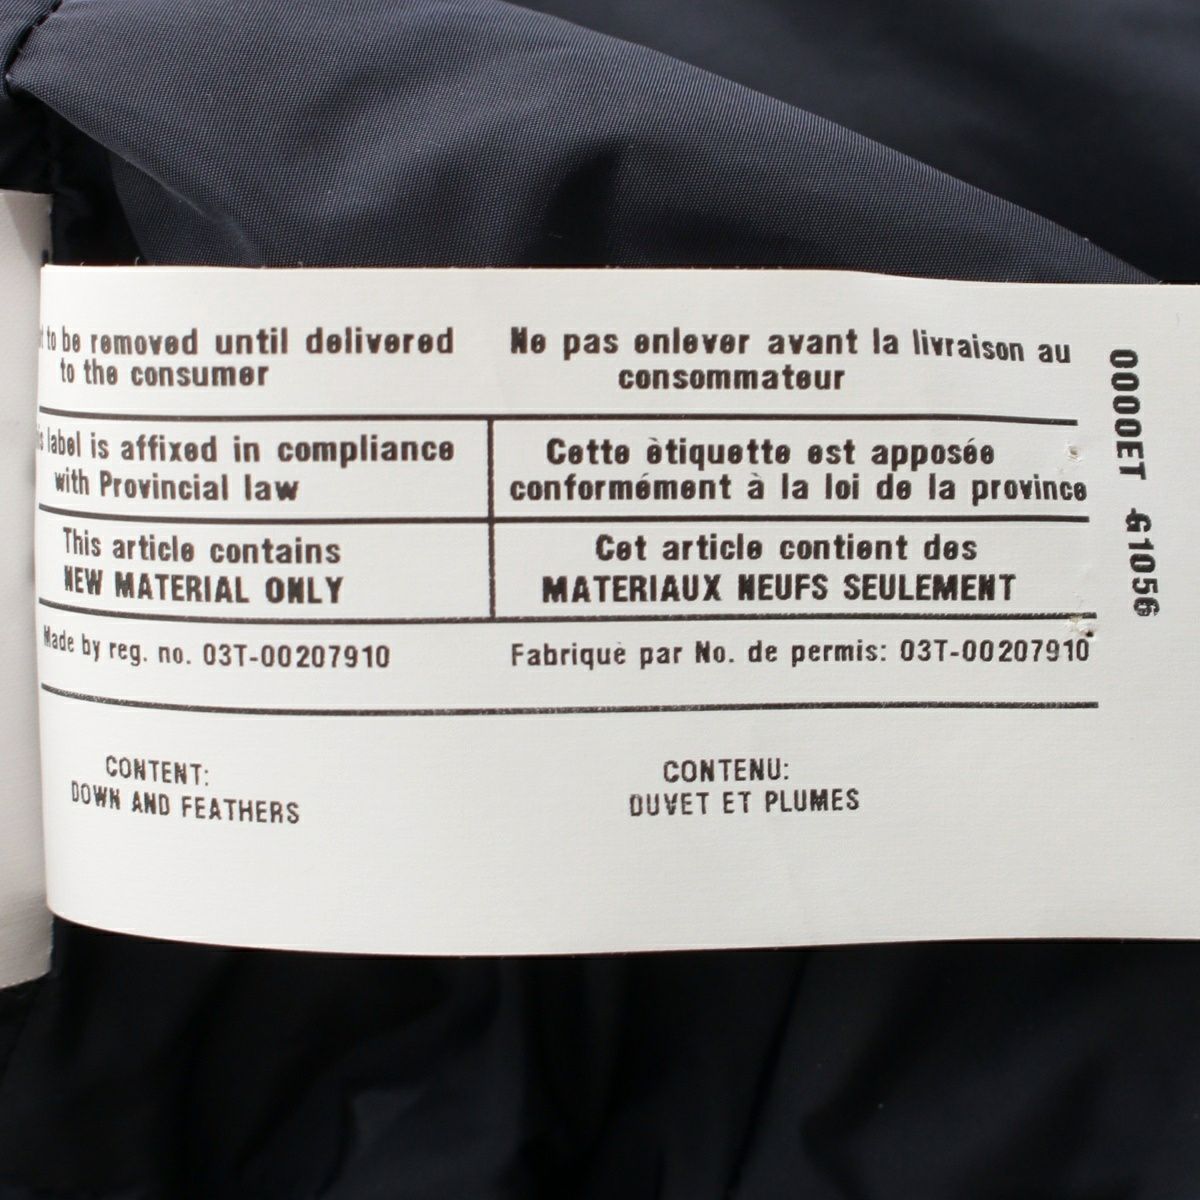 to be removed until delivered
to the consumer
Ne pas enlever avant la livraison au
consommateur
label is affixed in compliance
with Provincial law
Cette ètiquette est apposée
conformément à la loi de la province
This article contains
NEW MATERIAL ONLY
Cet article contient des
MATERIAUX NEUFS SEULEMENT
Made by reg. no. 03T-00207910
Fabriquè par No. de permis: 03T-00207910
CONTENT:
DOWN AND FEATHERS
CONTENU:
DUVET ET PLUMES
0000ET G1056